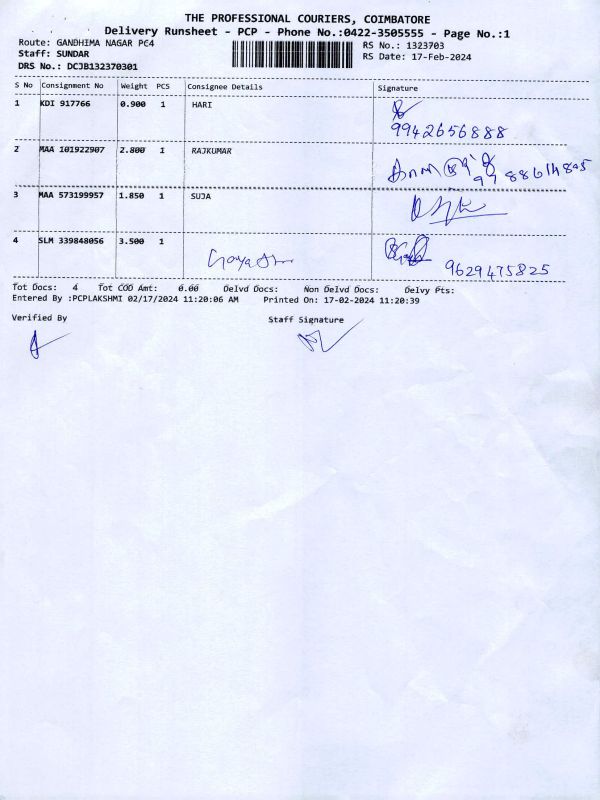 THE PROFESSIONAL COURIERS, COIMBATORE
Delivery Runsheet - PCP - Phone No.:0422-3505555 - Page No.:1
Route: GANDHIMA NAGAR PC4 RS No.: 1323703
Staff: SUNDAR RS Date: 17-Feb-2024
DRS No.: DCJB132370301
S No Consignment No Weight PCS Consignee Details Signature
1 KDI 917766 0.900 1 HARI
9942656888
2 MAA 101922907 2.800 1 RAJKUMAR
3 MAA 573199957 1.850 1 SUJA
4 SLM 339848056 3.500 1
9629475825
Tot Docs: 4 Tot COD Amt: 0.00 Delvd Docs: Non Delvd Docs: Delvy Pts:
Entered By :PCPLAKSHMI 02/17/2024 11:20:06 AM Printed On: 17-02-2024 11:20:39
Verified By Staff Signature